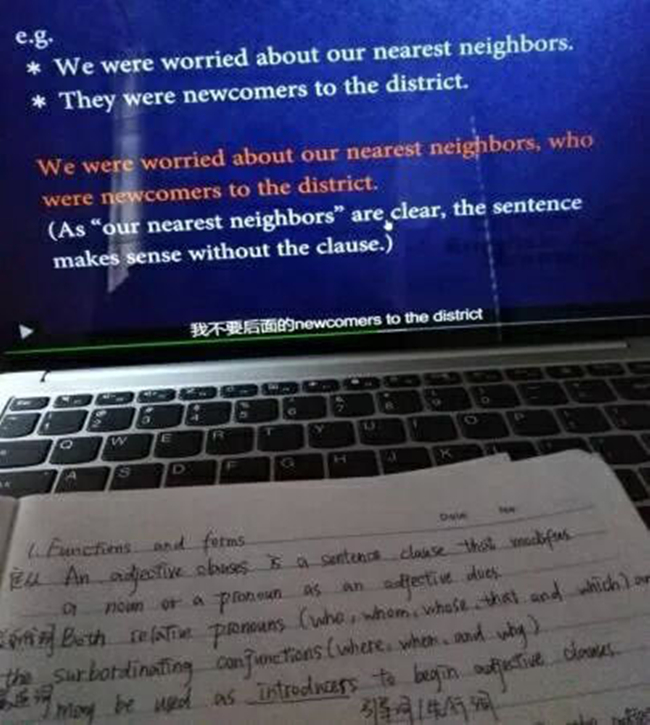 e.g.
* We were worried about our nearest neighbors.
* They were newcomers to the district.
We were worried about our nearest neighbors, who
were newcomers to the district.
(As “our nearest neighbors” are clear, the sentence
makes sense without the clause.)
我不要后面的newcomers to the district
Q W E R T Y U I O P
A S D F G H J K
Date No
1. Functions and forms
An adjective clauses is a sentence clause that modifies
a noun or a pronoun as an adjective does.
Both relative pronouns (who, whom, whose, that and which) or
the surbordinating conjunctions (where, when, and why)
may be used as introducers to begin adjective clauses
引导词/先行词